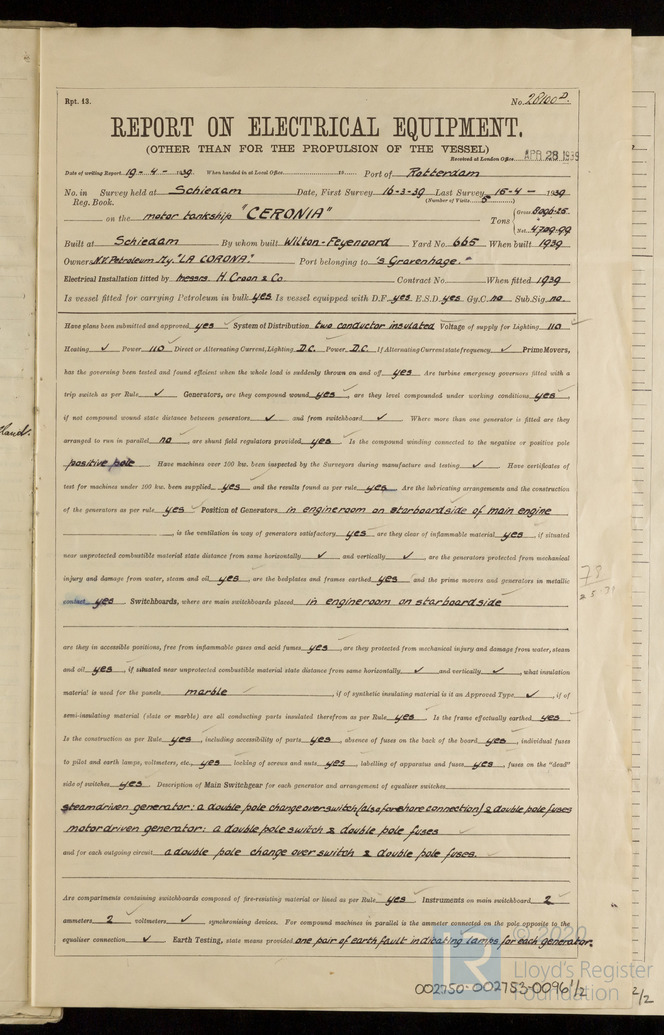 Rpt. 13.
No. 28100 D.
REPORT ON ELECTRICAL EQUIPMENT.
(OTHER THAN FOR THE PROPULSION OF THE VESSEL)
Received at London Office APR 28 1939
Date of writing Report 19 - 4 - 1939. When handed in at Local Office 19 Port of Rotterdam
No. in Survey held at Schiedam Date, First Survey 16-3-39 Last Survey 15-4- 1939
Reg. Book. (Number of Visits 5)
on the motor tankship "CERONIA" Tons { Gross 8096.25
Net 4709.99
Built at Schiedam By whom built Wilton-Feyenoord Yard No. 665 When built 1939
Owners N.V. Petroleum My. "LA CORONA" Port belonging to 's Gravenhage.
Electrical Installation fitted by Messrs H. Croon & Co Contract No. When fitted 1939
Is vessel fitted for carrying Petroleum in bulk yes Is vessel equipped with D.F. yes E.S.D. yes Gy.C. no Sub.Sig. no.
Have plans been submitted and approved yes System of Distribution two conductor insulated Voltage of supply for Lighting 110
Heating ✓ Power 110 Direct or Alternating Current, Lighting D.C. Power D.C. If Alternating Current state frequency ✓ Prime Movers,
has the governing been tested and found efficient when the whole load is suddenly thrown on and off yes Are turbine emergency governors fitted with a
trip switch as per Rule ✓ Generators, are they compound wound yes, are they level compounded under working conditions yes,
if not compound wound state distance between generators ✓ and from switchboard ✓ Where more than one generator is fitted are they
arranged to run in parallel no, are shunt field regulators provided yes Is the compound winding connected to the negative or positive pole
positive pole Have machines over 100 kw. been inspected by the Surveyors during manufacture and testing ✓ Have certificates of
test for machines under 100 kw. been supplied yes and the results found as per rule yes Are the lubricating arrangements and the construction
of the generators as per rule yes Position of Generators in engineroom on starboardside of main engine
, is the ventilation in way of generators satisfactory yes are they clear of inflammable material yes, if situated
near unprotected combustible material state distance from same horizontally ✓ and vertically ✓, are the generators protected from mechanical
injury and damage from water, steam and oil yes, are the bedplates and frames earthed yes and the prime movers and generators in metallic
contact yes Switchboards, where are main switchboards placed in engineroom on starboardside
are they in accessible positions, free from inflammable gases and acid fumes yes, are they protected from mechanical injury and damage from water, steam
and oil yes, if situated near unprotected combustible material state distance from same horizontally ✓ and vertically ✓, what insulation
material is used for the panels marble, if of synthetic insulating material is it an Approved Type ✓, if of
semi-insulating material (slate or marble) are all conducting parts insulated therefrom as per Rule yes Is the frame effectually earthed yes
Is the construction as per Rule yes, including accessibility of parts yes, absence of fuses on the back of the board yes, individual fuses
to pilot and earth lamps, voltmeters, etc., yes locking of screws and nuts yes, labelling of apparatus and fuses yes, fuses on the "dead"
side of switches yes Description of Main Switchgear for each generator and arrangement of equaliser switches
steamdriven generator: a double pole change overswitch (also for shore connection) & double pole fuses
motordriven generator: a double pole switch & double pole fuses
and for each outgoing circuit a double pole change over switch & double pole fuses.
Are compartments containing switchboards composed of fire-resisting material or lined as per Rule yes Instruments on main switchboard 2
ammeters 2 voltmeters ✓ synchronising devices. For compound machines in parallel is the ammeter connected on the pole opposite to the
equaliser connection ✓ Earth Testing, state means provided one pair of earth fault indicating lamps for each generator.
© 2020
Lloyd's Register
Foundation
002750-002753-0096 1/2
2/2